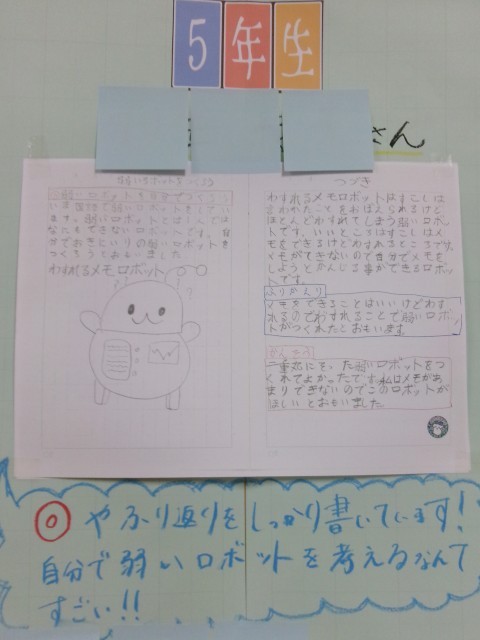 5年生
さん
弱いロボットをつくろう
弱いロボットを自分でつくろう
いま国語で弱いロボットをしてい
ます。弱いロボットとは1人では
なにもできないロボットです。自
分でおきにいりの弱いロボットを
つくろうとおもいました
わすれるメモロボット
つづき
わすれるメモロボットはすこしは
言われたことをおぼえられるけど、
ほとんどわすれてしまう弱いロボッ
トです。いいところはすこしはメ
モをできるけどわすれるところです。
メモができないので自分でメモを
しようとかんじる事ができるロボッ
トです。
ふりかえり
メモをできることはいいけどわす
れるのでわすれることで弱いロボッ
トがつくれたとおもいます。
かんそう
ロボットをつ
くれてよかったです。私はメモがあ
まりできないのでこのロボットが
ほしいとおもいました
◎やふり返りをしっかり書いています!
自分で弱いロボットを考えるなんて
すごい!!